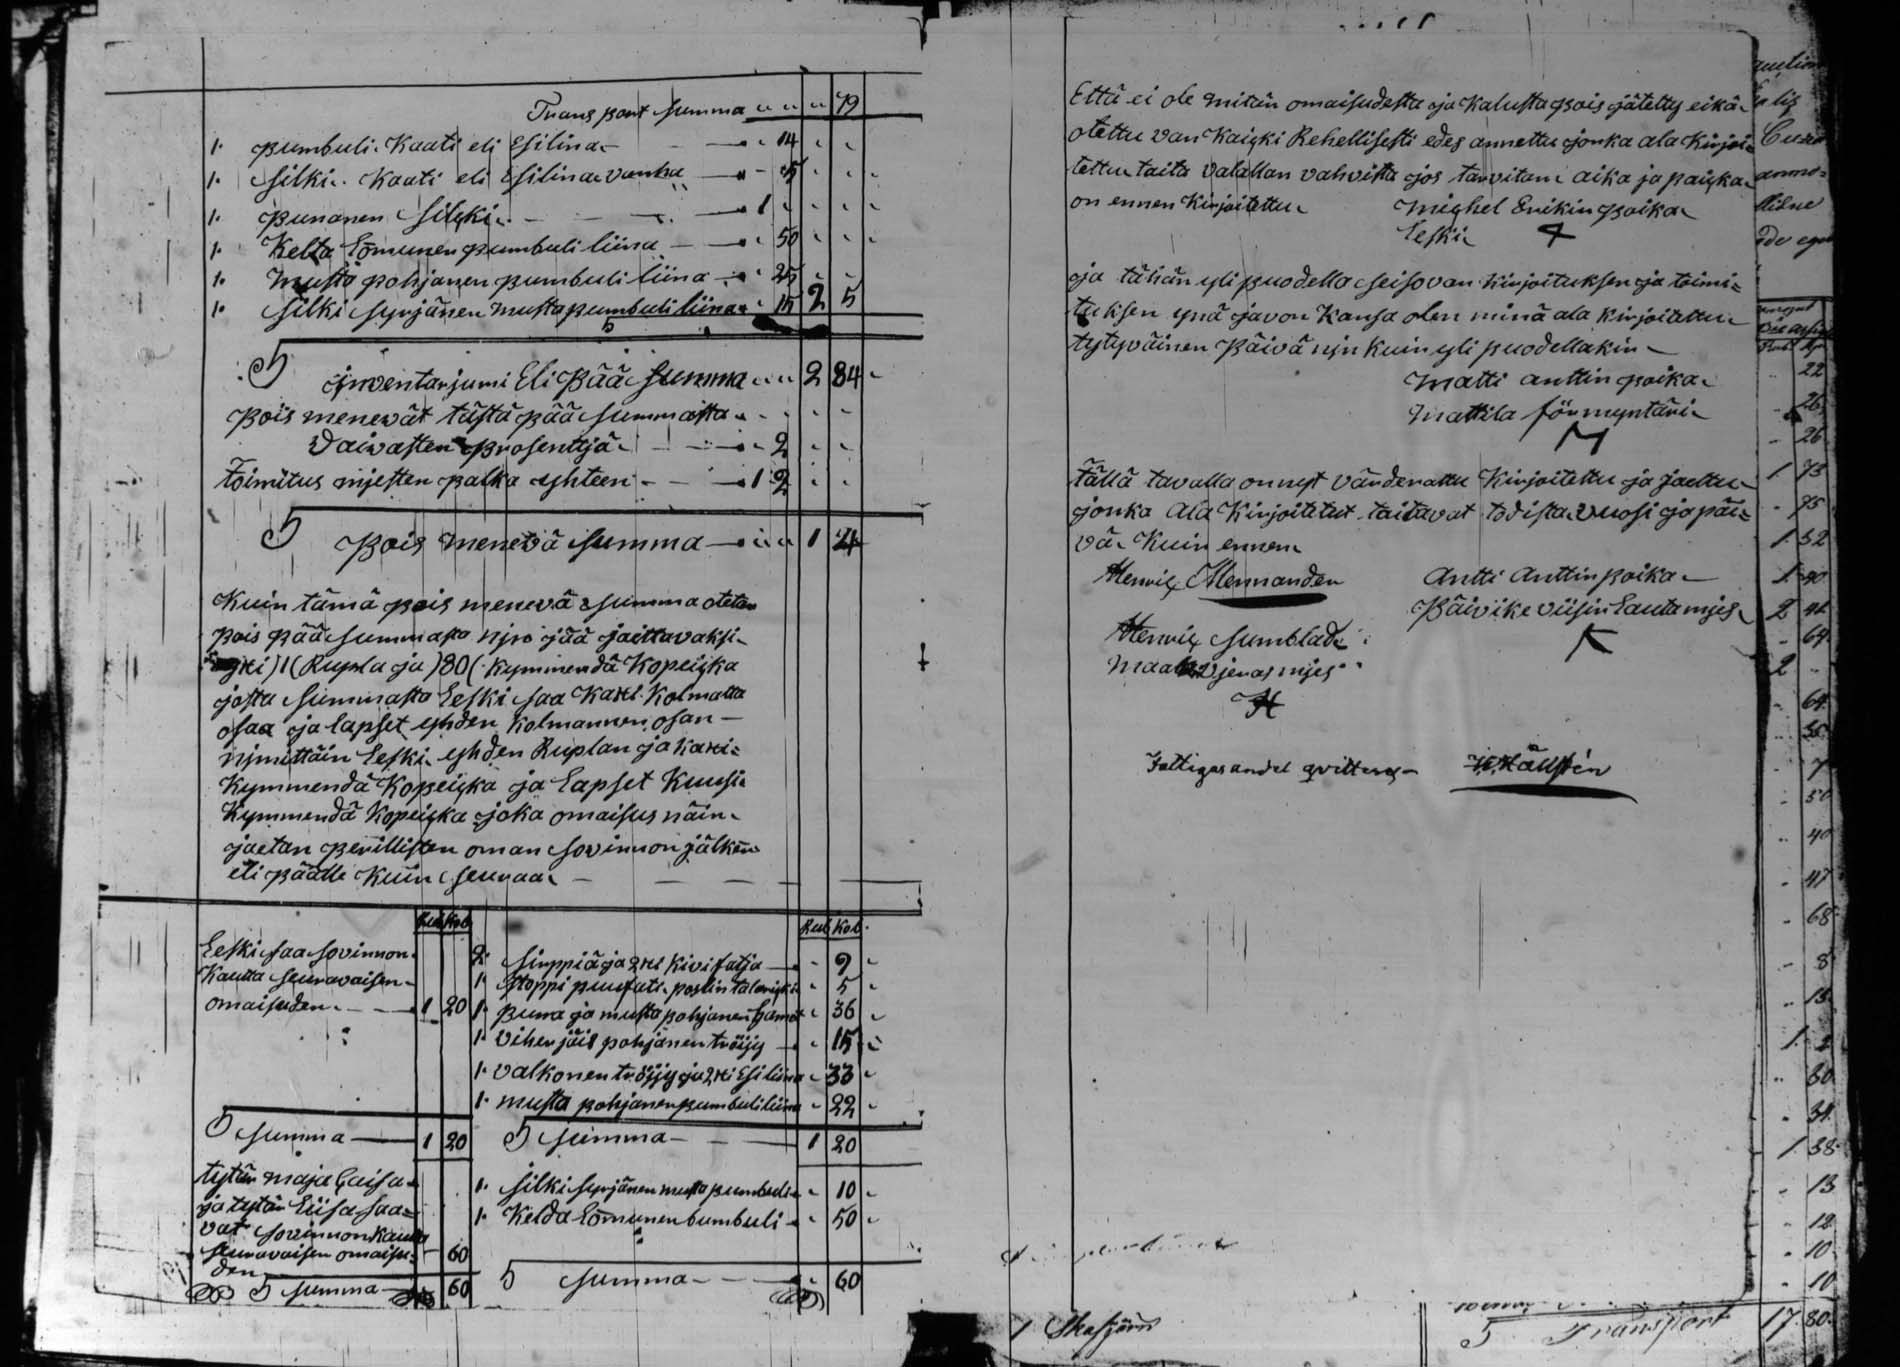 Transport summa " " " 79
1. pumbuli Kaati eli Esilina — " 14 " "
1. silki. Kaati eli Esilina vanha — " 15 " "
1. punanen silki. — 1 " " "
1. Kelta Lomunen pumbuli liina — " 50 " "
1. musta pohjanen pumbuli liina — " 25 " "
1. silki syrjänen musta pumbuli liina " 15 2 5
S
inventarjumi Eli Pää summa " " 2 84
Pois menevät tästä pää summasta
Vaivasten prosenttjä — " 2 " "
Toimitus mjesten palka yhteen — 1 2 " "
S Pois menevä summa — " " 1 4
Kuin tämä pois menevä summa otetan
pois pää summasta njn jää jaittavaksi
)1( Rupla ja )80( kymmendä Kopeiska
josta summasta Leski saa Kaxi Kolmatta
osaa ja lapset yhden Kolmannen osan —
njmittäin Leski yhden Ruplan ja kaxi=
kymmendä Kopeiska ja Lapset Kuusi
Kymmendä Kopeiska joka omaisus näin
jaetan perillisten oman sovinnon jälken
eli päälle Kuin seuraa
Rub Kob Rub Kob.
Leski saa sovinnon
Kautta seuravaisen
omaisuden — 1 20
2. sirppiä ja 2xi Kivi fatja — " 9
1. stoppi puufati poslin talriski " 5
1. puna ja musta pohjanen hamet " 36
1. viherjäis pohjanen tröijy — " 15
1. valkonen tröijy ja 2xi Esiliina " 33
1. musta pohjanen pumbuli liina " 22
S summa — 1 20 S summa — 1 20
tytär maja Caisa
ja tytär Liisa saa=
vat sovinnon kautta
seuravaisen omaisu= 60
den
1. silki syrjänen musta pumbuli " 10
1. Kelda Lomunen bumbuli " 50
S summa — 60 S summa — " 60
Että ei ole mitän omaisudesta ja Kalusta pois jätetty eikä
otettu van Kaicki Rehellisesti edes annettu jonka ala Kirjoi=
tettu taita valallan vahvista jos tarvitan aika ja paicka
on ennen Kirjoitettu Michel Erikin poika
Leski
ja tähän yli puodella seisovan Kirjoituksen ja toimi=
tuksen ynä javon Kansa olen minä ala Kirjoitettu
tytyväinen Päivä njn Kuin yli puodellakin —
Matti anttin poika
Mattila förmyntäri
Tällä tavalla on nyt värderattu Kirjoitettu ja jaettu
jonka ala Kirjoitetut taitavat todista vuosi ja päi=
vä Kuin ennen
Henric Mennander Antti Anttin poika —
Päivike viisin Lautamjes
Henric Sumblad
Maan vjeras mjes
H
Fattigas andel qvitteras — Hällsten
22
26
26
1 73
75
1 52
2
64
2
64
7
50
40
47
68
8
15
1 2
60
34
1 38
13
12
10
10
S Transport 17. 80.
1